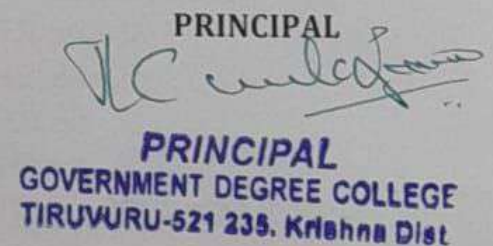 PRINCIPAL
PRINCIPAL
GOVERNMENT DEGREE COLLEGE
TIRUVURU-521 235. Krishna Dist